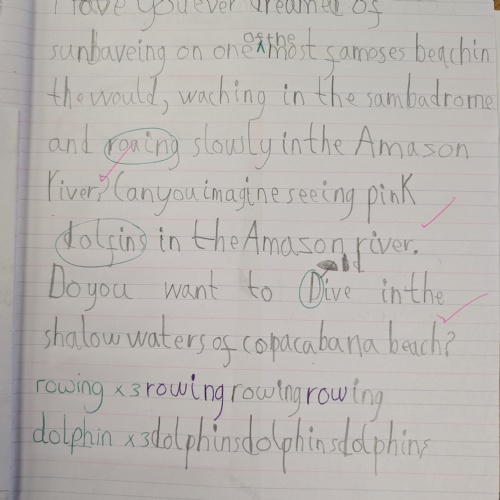 Have you ever dreamed of
sunbaveing on one of the most famoses beach in
the would, waching in the sambadrome
and rouing slowly in the Amason
river? Can you imagine seeing pink
dolfins in the Amason river.
Do you want to Dive in the
shalow waters of copacabana beach?
rowing x3 rowing rowing rowing
dolphin x3 dolphins dolphins dolphins